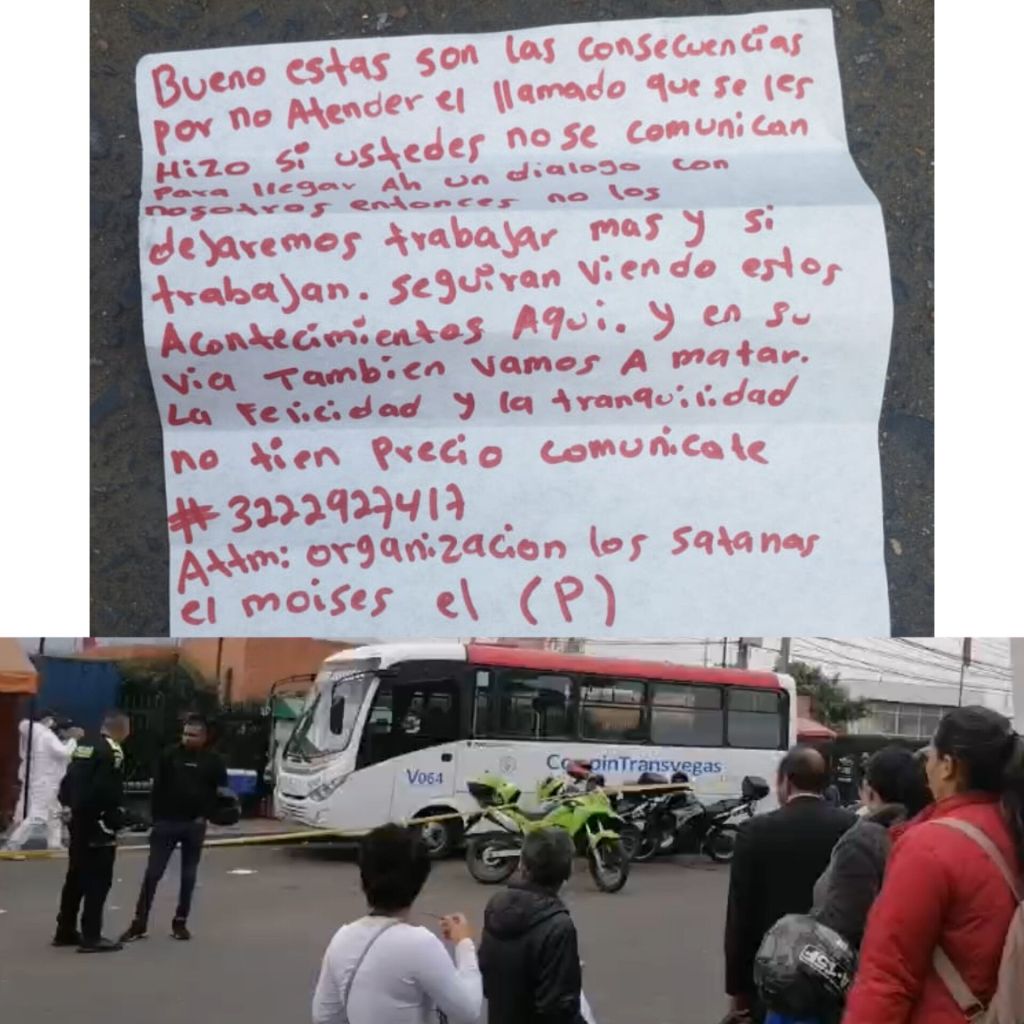 Bueno estas son las consecuencias
por no Atender el llamado que se les
Hizo si ustedes no se comunican
Para llegar Ah un dialogo con
nosotros entonces no los
dejaremos trabajar mas y si
trabajan. seguiran viendo estos
Acontecimientos Aqui. y en su
via Tambien vamos A matar.
La Felicidad y la tranquilidad
no tien Precio comunicate
# 3222927417
Attm: organizacion los satanas
el moises el (P)
V064
CootpinTransvegas